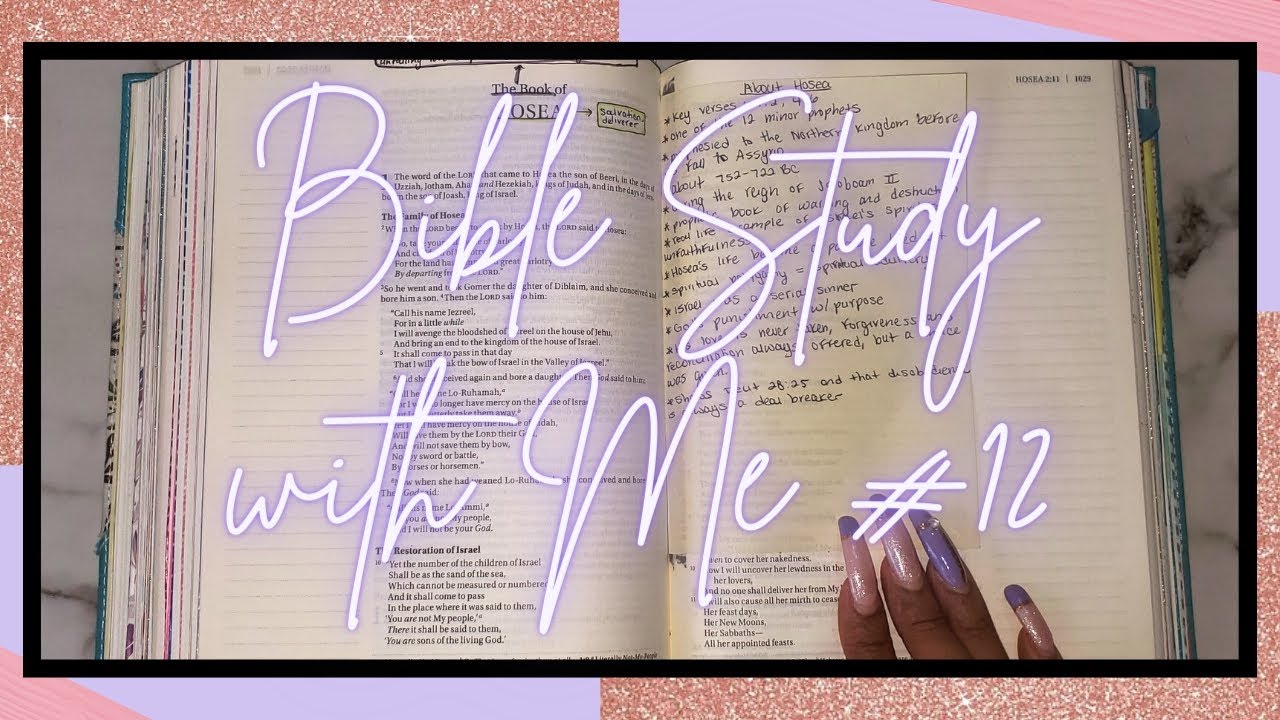 Bible Study
with Me #12
The Book of
HOSEA
salvation,
deliverer
The word of the LORD that came to Hosea the son of Beeri, in the days of
Uzziah, Jotham, Ahaz and Hezekiah, kings of Judah, and in the days of
the son of Joash, king of Israel.
The Family of Hosea
the LORD said to Hosea:
For the land has great harlotry
By departing from the LORD."
So he went and took Gomer the daughter of Diblaim, and she conceived and
bore him a son. Then the LORD said to him:
"Call his name Jezreel,
For in a little while
I will avenge the bloodshed of Jezreel on the house of Jehu,
And bring an end to the kingdom of the house of Israel.
5 It shall come to pass in that day
That I will break the bow of Israel in the Valley of Jezreel."
And she conceived again and bore a daughter. Then God said to him:
"Call her name Lo-Ruhamah,
For I will no longer have mercy on the house of Israel
But I will utterly take them away.
Yet I will have mercy on the house of Judah,
Will save them by the LORD their God,
And will not save them by bow,
Nor by sword or battle,
By horses or horsemen."
Now when she had weaned Lo-Ruhamah, she conceived and bore
Then God said:
"Call his name Lo-Ammi,
For you are not My people,
And I will not be your God.
The Restoration of Israel
10 Yet the number of the children of Israel
Shall be as the sand of the sea,
Which cannot be measured or numbered
And it shall come to pass
In the place where it was said to them,
'You are not My people,'
There it shall be said to them,
'You are sons of the living God.'
HOSEA 2:11 | 1029
About Hosea
* key verses
* one of the 12 minor prophets
* prophesied to the Northern Kingdom before
fall to Assyria
about 752-722 BC
during the reign of Jeroboam II
* prophetic book of warning and destruction
* real life example of Israel's
unfaithfulness
* Hosea's life
* Spiritual = spiritual adultery
* Israel was a serial sinner
* God's punishment w/ purpose
* love is never taken, forgiveness and
reconciliation always offered, but a
was given
* shows Deut 28:25 and that disobedience
is always a deal breaker
to cover her nakedness.
10 Now I will uncover her lewdness in the
her lovers,
And no one shall deliver her from My
11 I will also cause all her mirth to cease
Her feast days,
Her New Moons,
Her Sabbaths—
All her appointed feasts.